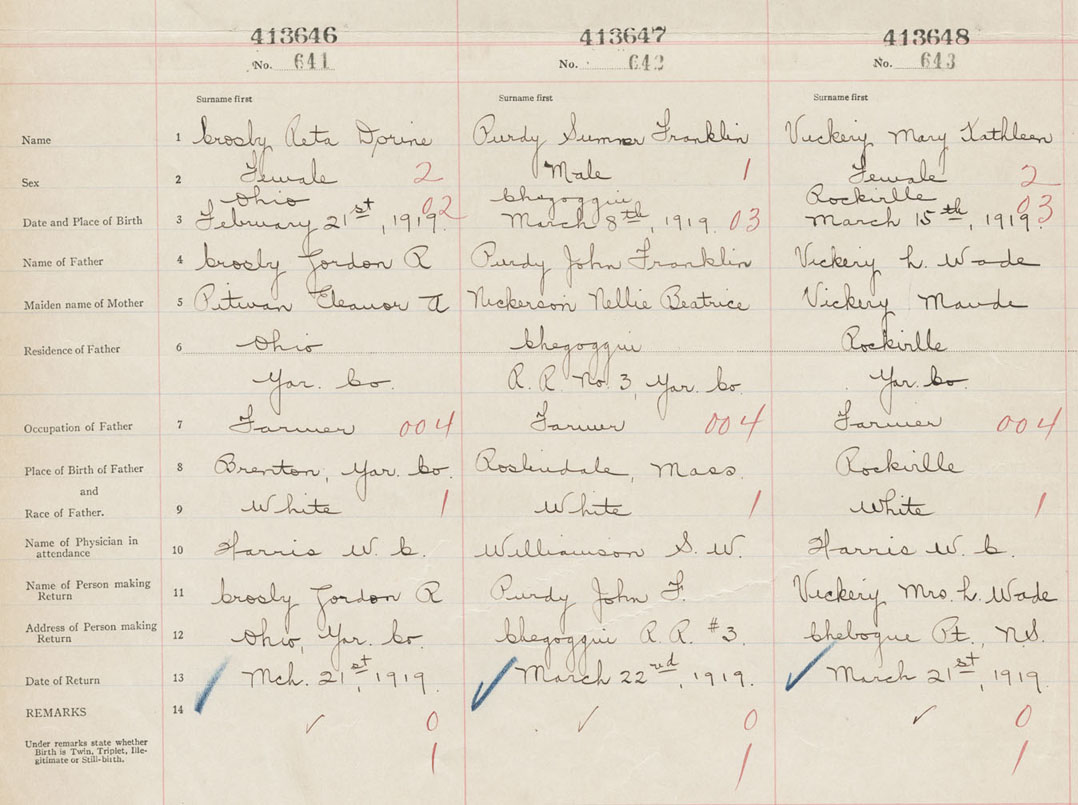 413646 413647 413648
No. 641 No. 642 No. 643
Surname first Surname first Surname first
Name 1 Crosby Reta Dorine Purdy Sumner Franklin Vickery Mary Kathleen
Sex 2 Female 2 Male 1 Female 2
Ohio Chegoggin Rockville
Date and Place of Birth 3 February 21st, 1919. 02 March 8th, 1919. 03 March 15th, 1919. 03
Name of Father 4 Crosby Gordon R Purdy John Franklin Vickery L. Wade
Maiden name of Mother 5 Pitman Eleanor A Nickerson Nellie Beatrice Vickery Maude
Residence of Father 6 Ohio Chegoggin Rockville
Yar. Co. R. R. No. 3, Yar. Co. Yar. Co.
Occupation of Father 7 Farmer 004 Farmer 004 Farmer 004
Place of Birth of Father 8 Brenton, Yar. Co. Roslindale, Mass. Rockville
and
Race of Father. 9 White 1 White 1 White 1
Name of Physician in
attendance 10 Harris W. C. Williamson S. W. Harris W. C.
Name of Person making
Return 11 Crosby Gordon R Purdy John F. Vickery Mrs. L. Wade
Address of Person making
Return 12 Ohio, Yar. Co. Chegoggin R. R. #3 Chebogue Pt., N.S.
Date of Return 13 Mch. 21st, 1919. March 22nd, 1919. March 21st, 1919.
REMARKS 14 ✓ 0 ✓ 0 ✓ 0
Under remarks state whether
Birth is Twin, Triplet, Ille-
gitimate or Still-birth. 1 1 1